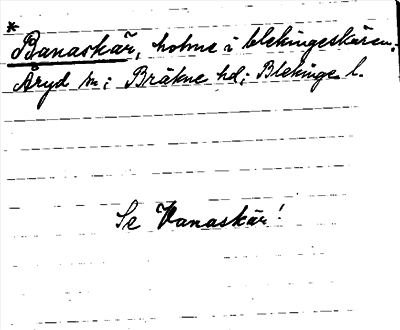 *
Banaskär, holme i blekingeskären;
Åryd sn; Bräkne hd; Blekinge l.
Se Vanaskär!